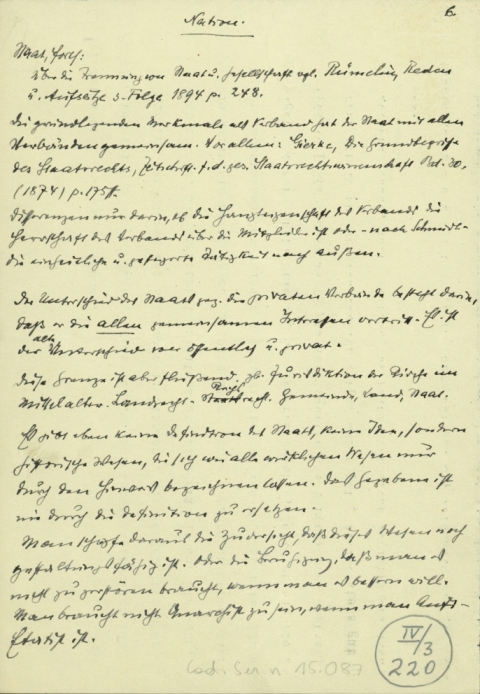 6
Nation.
Staat, Forts:
Über die Trennung von Staat u. Gesellschaft vgl. Rümelin, Reden
u. Aufsätze 3. Folge 1894 p. 248.
Die grundlegenden Merkmale als Verband hat der Staat mit allen
Verbänden gemeinsam. Vor allem: Gierke, Die Grundbegriffe
des Staatsrechts, Zeitschrift f. d. ges. Staatsrechtswissenschaft Bd. 30,
(1874) p. 175 ff.
Differenzen nur darin, ob die Haupteigenschaft des Verbands die
Herrschaft des Verbands über die Mitglieder ist oder - nach Schmidt -
die einheitliche u. gesteigerte Tätigkeit nach außen.
Der Unterschied des Staats geg. die privaten Verbände besteht darin,
daß er die allen gemeinsamen Interessen vertritt. Es ist
der alte Unterschied von öffentlich u. privat.
Diese Grenze ist aber fließend, zb. Jurisdiktion der Kirche im
Mittelalter. Landrecht - Reichsrecht. Gemeinde, Land, Staat.
Es gibt eben keine Definition des Staats, keine Idee, sondern
historische Wesen, die sich wie alle wirklichen Wesen nur
durch den Hinweis bezeichnen lassen. Das Gegebene ist
nie durch die Definition zu ersetzen.
Man schöpfe daraus die Zuversicht, daß dieses Wesen noch
gestaltungsfähig ist. Oder die Beruhigung, daß man es
nicht zu zerstören braucht, wenn man es bessern will.
Man braucht nicht Anarchist zu sein, wenn man Anti-
Etatist ist.
IV/3
220
Cod. Ser. n. 15.087